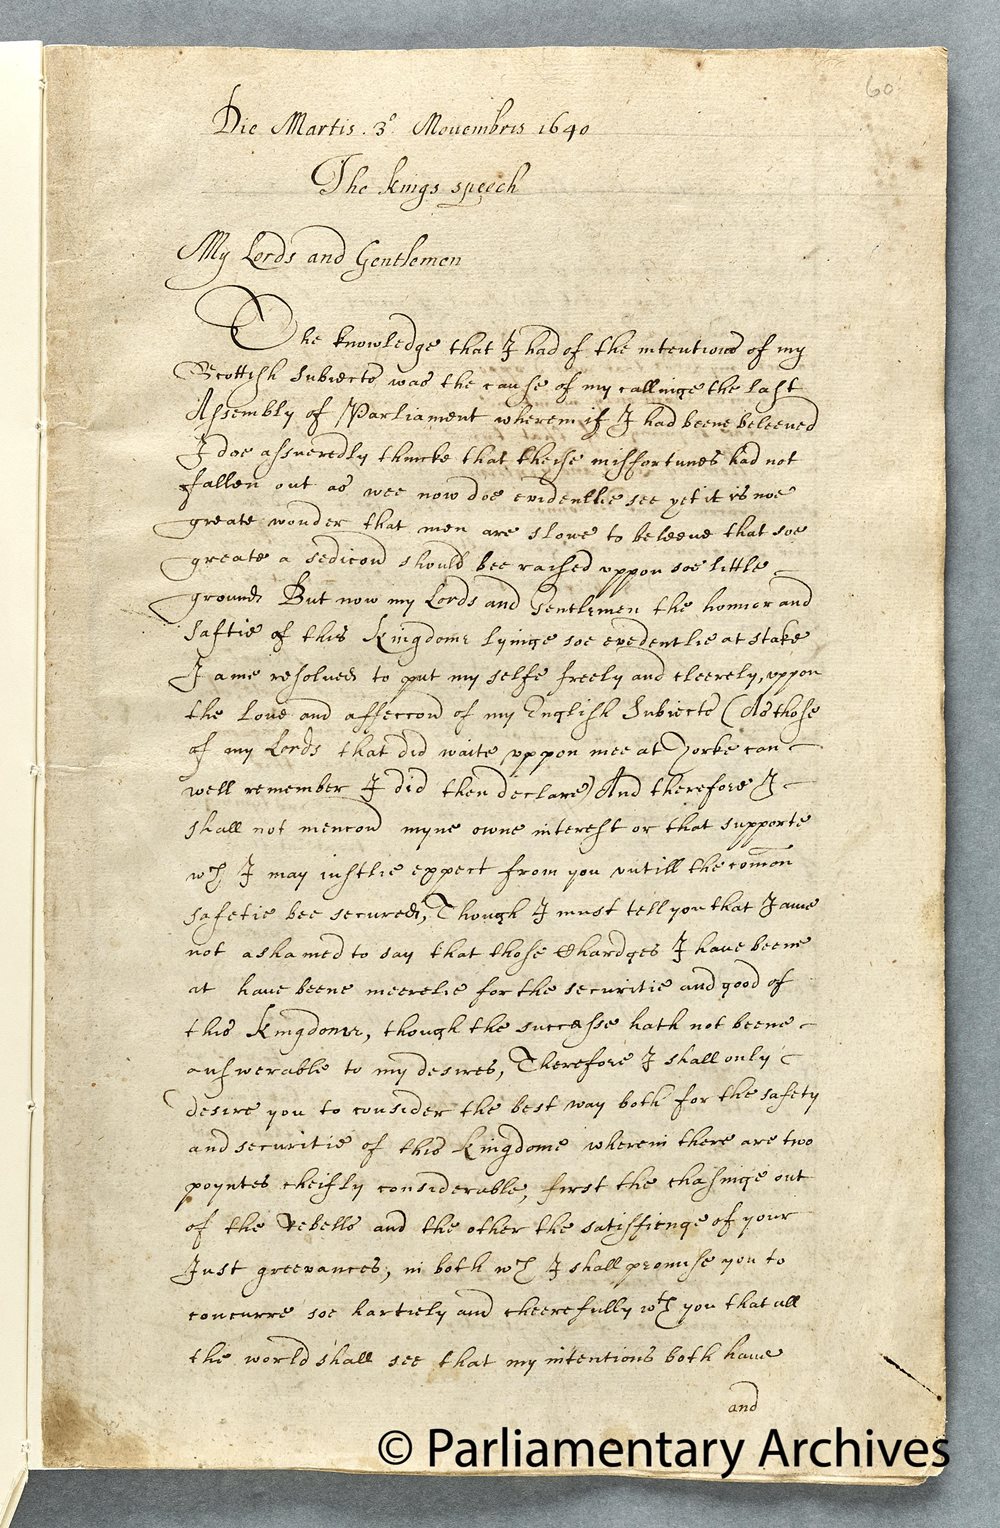 60
Die Martis. 3o. Novembris 1640
The kings speech
My Lords and Gentlemen
The knowledge that I had of the intentions of my
Scottish Subiects was the cause of my callinge the last
Assembly of Parliament wherein if I had beene beleeved
I doe assueredly thincke that theise misfortunes had not
fallen out as wee now doe evidentlie see yet it is noe
greate wonder that men are slowe to beleeve that soe
greate a sedicon should bee raised uppon soe little
ground, But now my Lords and Gentlemen the honnor and
saftie of this Kingdome lyinge soe evedentlie at stake
I ame resolved to put my selfe freely and cleerely, uppon
the Love and affeccon of my English Subiects (As those
of my Lords that did waite uppon mee at Yorke can
well remember I did then declare) And therefore I
shall not mencon myne owne interest or that supporte
wch I may iustlie expect from you untill the comon
safetie bee secured, Though I must tell you that I ame
not ashamed to say that those Chardges I have beene
at have beene meerelie for the securitie and good of
this Kingdome, though the successe hath not beene
answerable to my desires, Therefore I shall only
desire you to consider the best way both for the safety
and securitie of this Kingdome wherein there are two
poyntes cheifly considerable, first the chasinge out
of the rebells and the other the satisfienge of your
Just greevances, in both wch I shall promise you to
concurre soe hartiely and cheerefully wth you that all
the world shall see that my intentions both have
and
© Parliamentary Archives